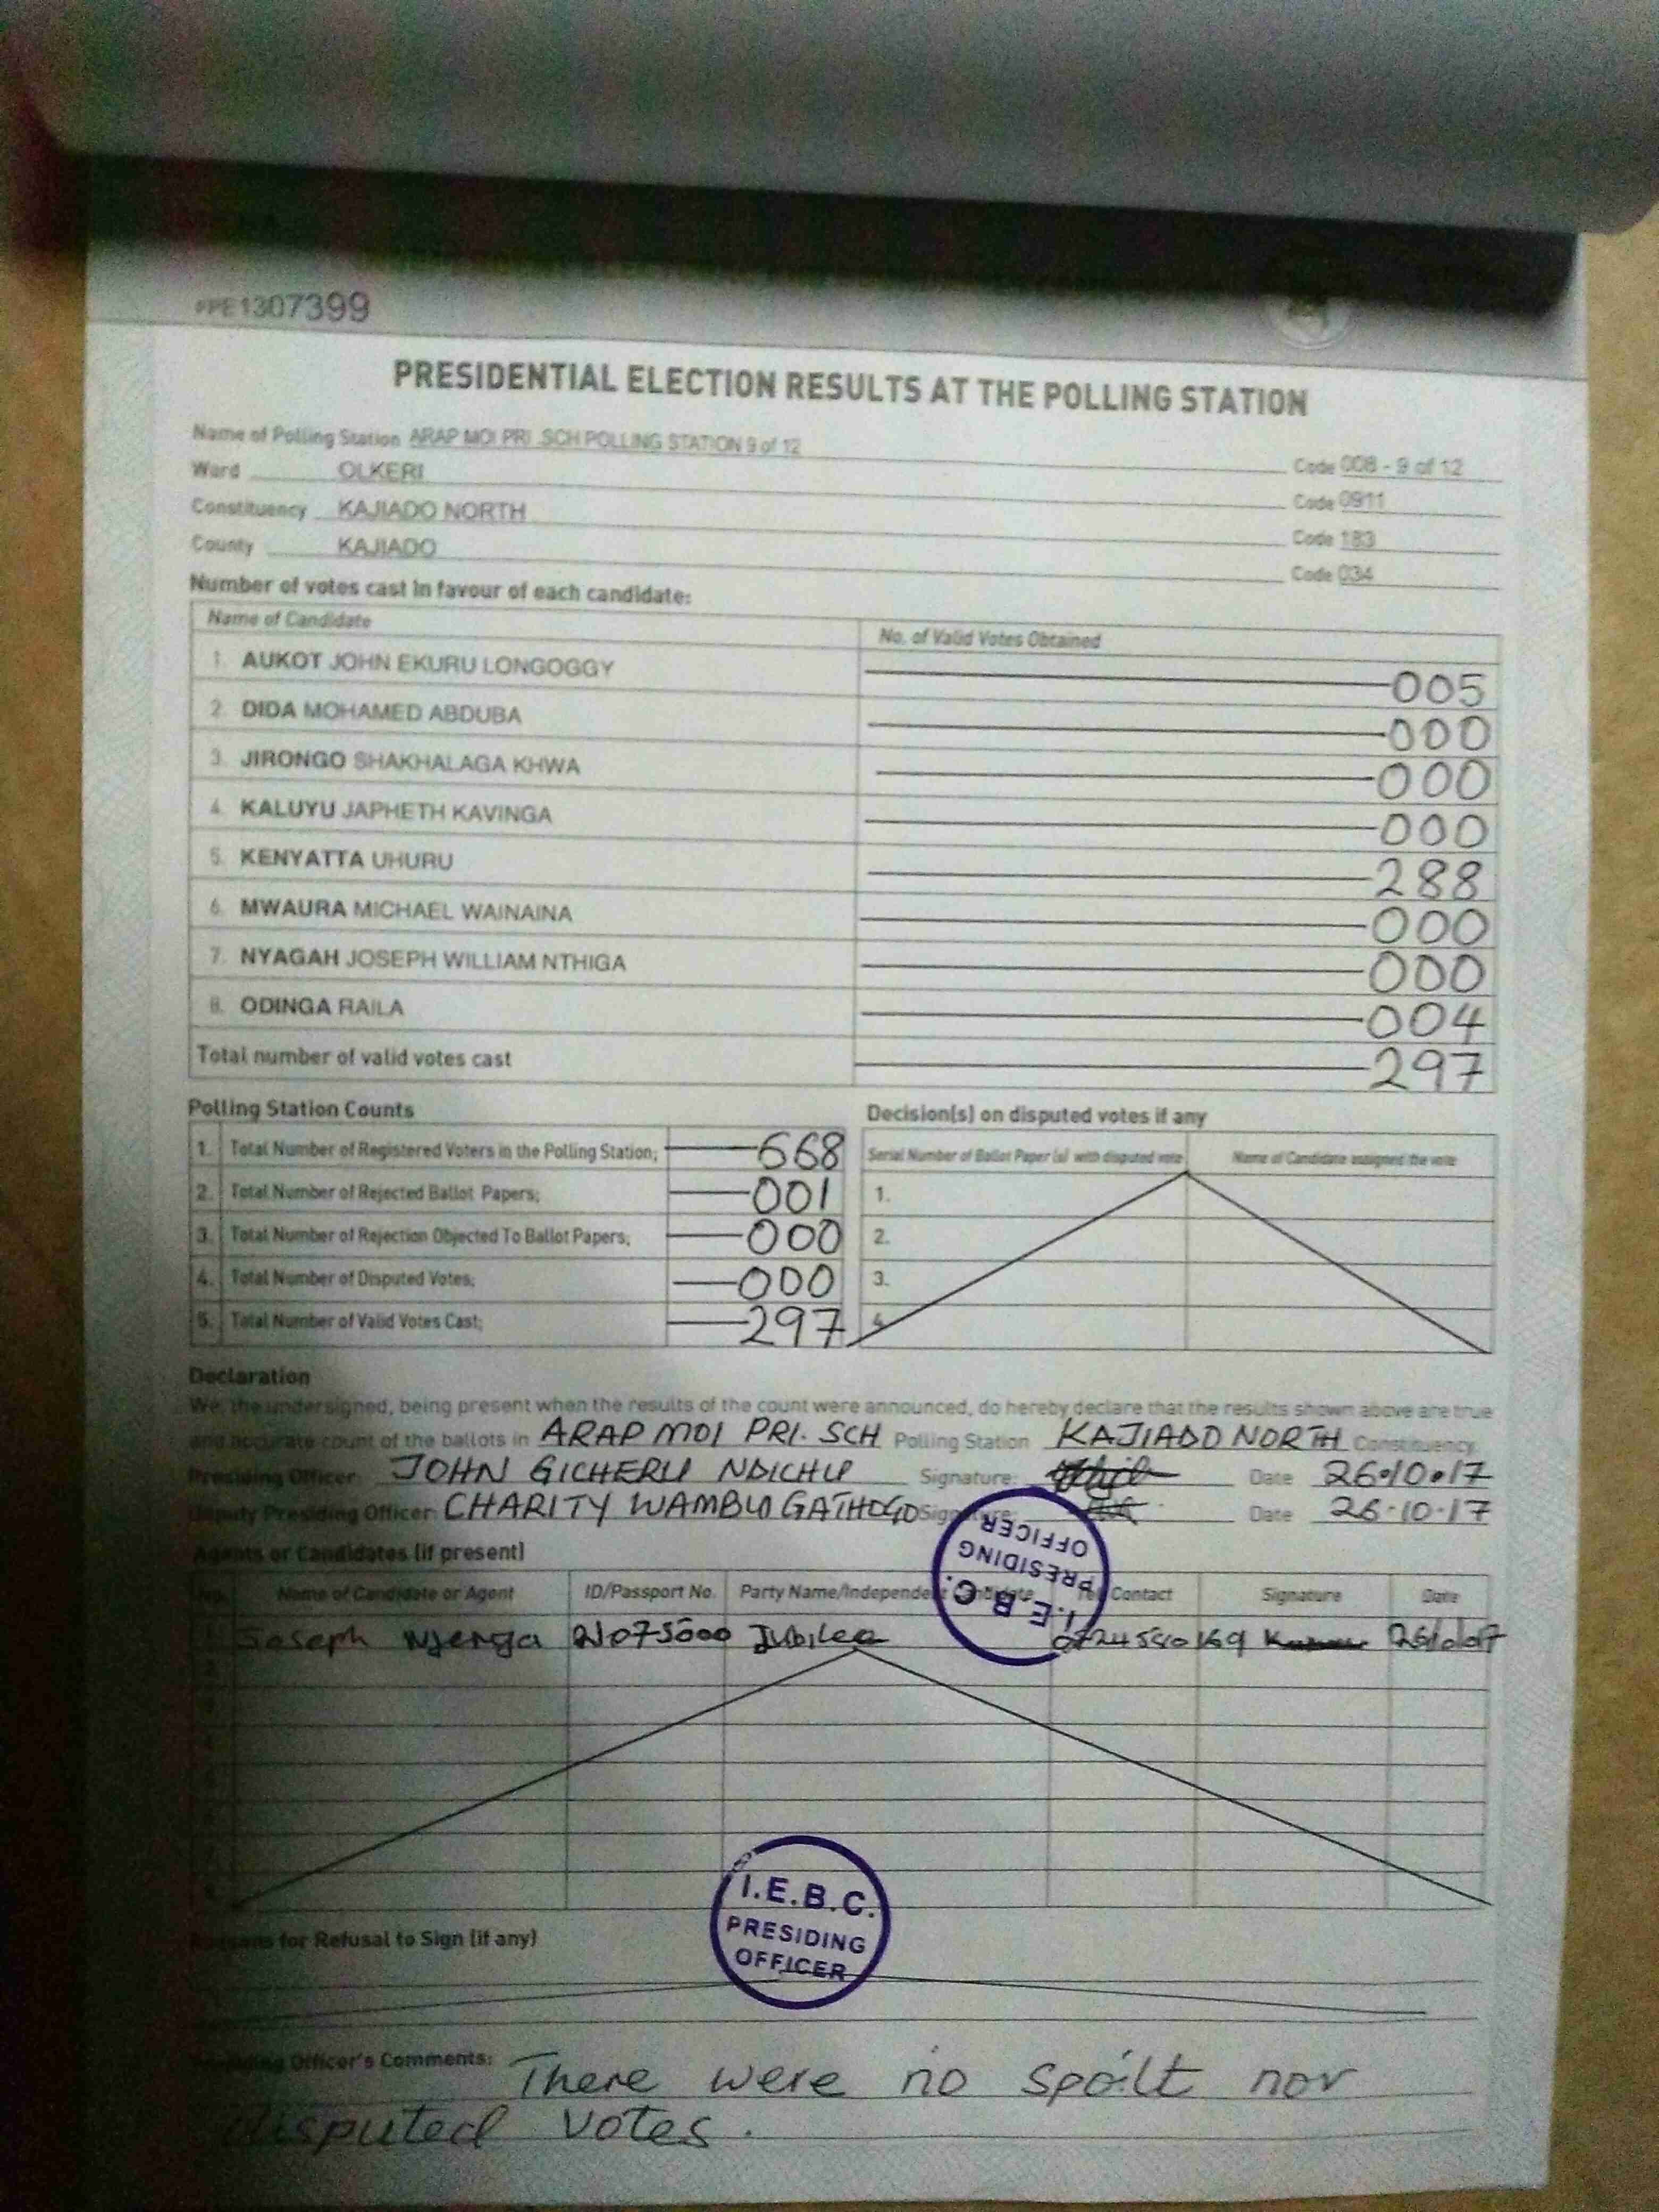 PE1307399
PRESIDENTIAL ELECTION RESULTS AT THE POLLING STATION
Name of Polling Station ARAP MOI PRI .SCH POLLING STATION 9 of 12 Code 008 - 9 of 12
Ward OLKERI Code 0911
Constituency KAJIADO NORTH Code 183
County KAJIADO Code 034
Number of votes cast in favour of each candidate:
Name of Candidate No. of Valid Votes Obtained
1. AUKOT JOHN EKURU LONGOGGY 005
2. DIDA MOHAMED ABDUBA 000
3. JIRONGO SHAKHALAGA KHWA 000
4. KALUYU JAPHETH KAVINGA 000
5. KENYATTA UHURU 288
6. MWAURA MICHAEL WAINAINA 000
7. NYAGAH JOSEPH WILLIAM NTHIGA 000
8. ODINGA RAILA 004
Total number of valid votes cast 297
Polling Station Counts Decision(s) on disputed votes if any
Serial Number of Ballot Paper (s) with disputed vote Name of Candidate assigned the vote
1. Total Number of Registered Voters in the Polling Station; 668
2. Total Number of Rejected Ballot Papers; 001 1.
3. Total Number of Rejection Objected To Ballot Papers; 000 2.
4. Total Number of Disputed Votes; 000 3.
5. Total Number of Valid Votes Cast; 297 4.
Declaration
We, the undersigned, being present when the results of the count were announced, do hereby declare that the results shown above are true
and accurate count of the ballots in ARAP MOI PRI. SCH Polling Station KAJIADO NORTH Constituency
Presiding Officer: JOHN GICHERU NDICHU Signature: Date 26.10.17
Deputy Presiding Officer: CHARITY WAMBUI GATHOGO Signature: Date 26.10.17
Agents or Candidates (if present)
Name of Candidate or Agent ID/Passport No. Party Name/Independent Candidate Contact Signature Date
Joseph Njenga Jubilee
I.E.B.C.
PRESIDING
OFFICER
I.E.B.C.
PRESIDING
OFFICER
Reasons for Refusal to Sign (if any)
Presiding Officer's Comments: There were no spoilt nor
disputed votes.